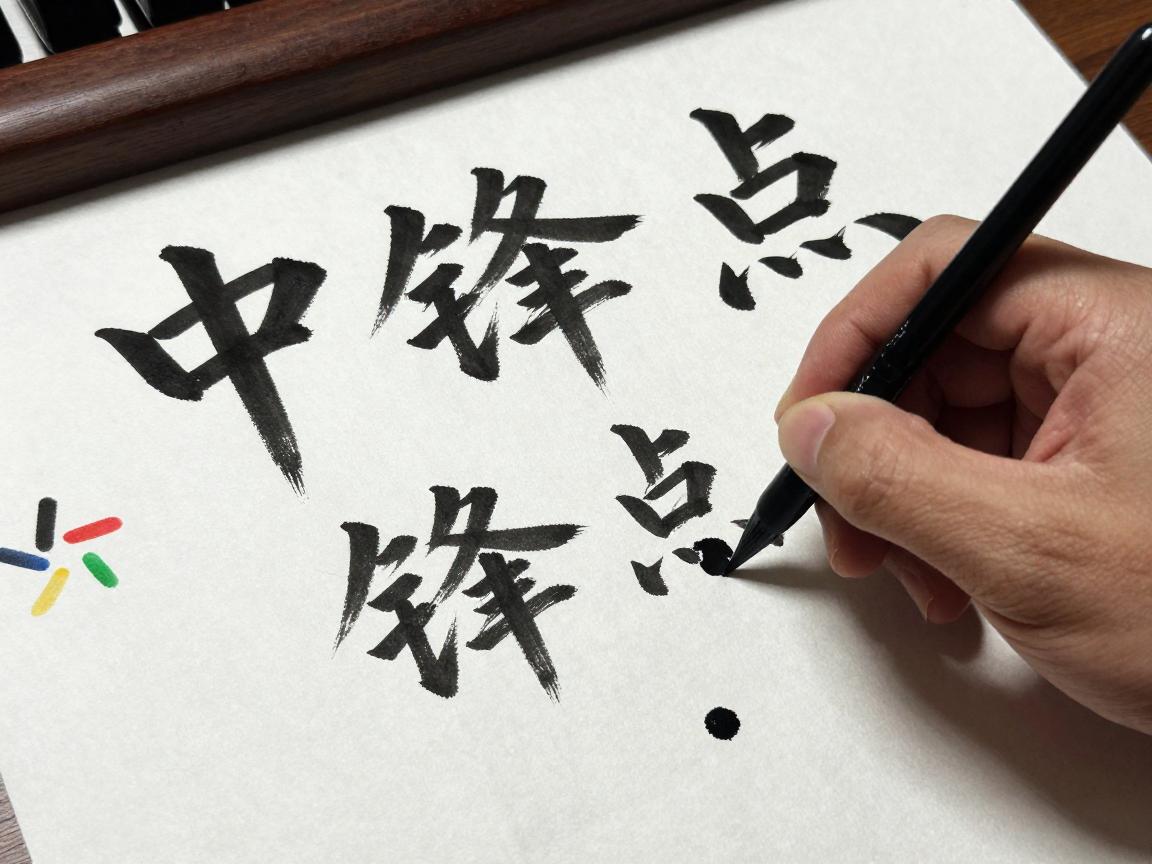 中锋点
锋点